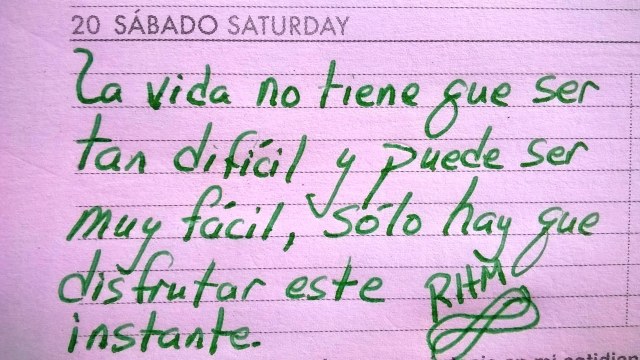 20 SÁBADO SATURDAY
La vida no tiene que ser
tan difícil y puede ser
muy fácil, sólo hay que
disfrutar este
RHM
instante.
en mi cotidian